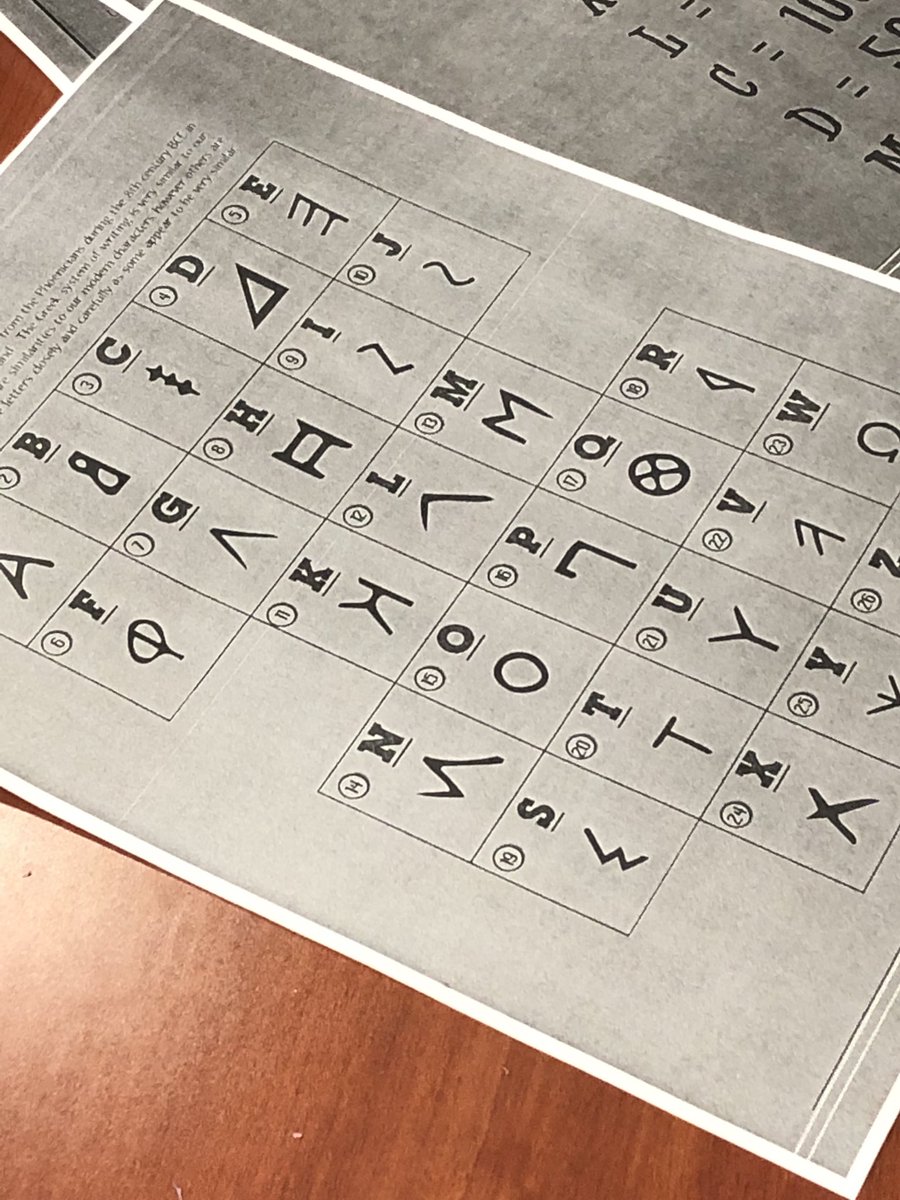 from the Phoenicians during the 8th century BCE in
The Greek system of writing is very similar to our
similarities to our modern characters however others are
letters closely and carefully as some appear to be very similar
2 B 3 C 4 D 5 E
6 F 7 G 8 H 9 I 10 J
11 K 12 L 13 M
14 N 15 O 16 P 17 Q 18 R
19 S 20 T 21 U 22 V 23 W
24 X 25 Y 26 Z
L =
C = 10
D = 50
M